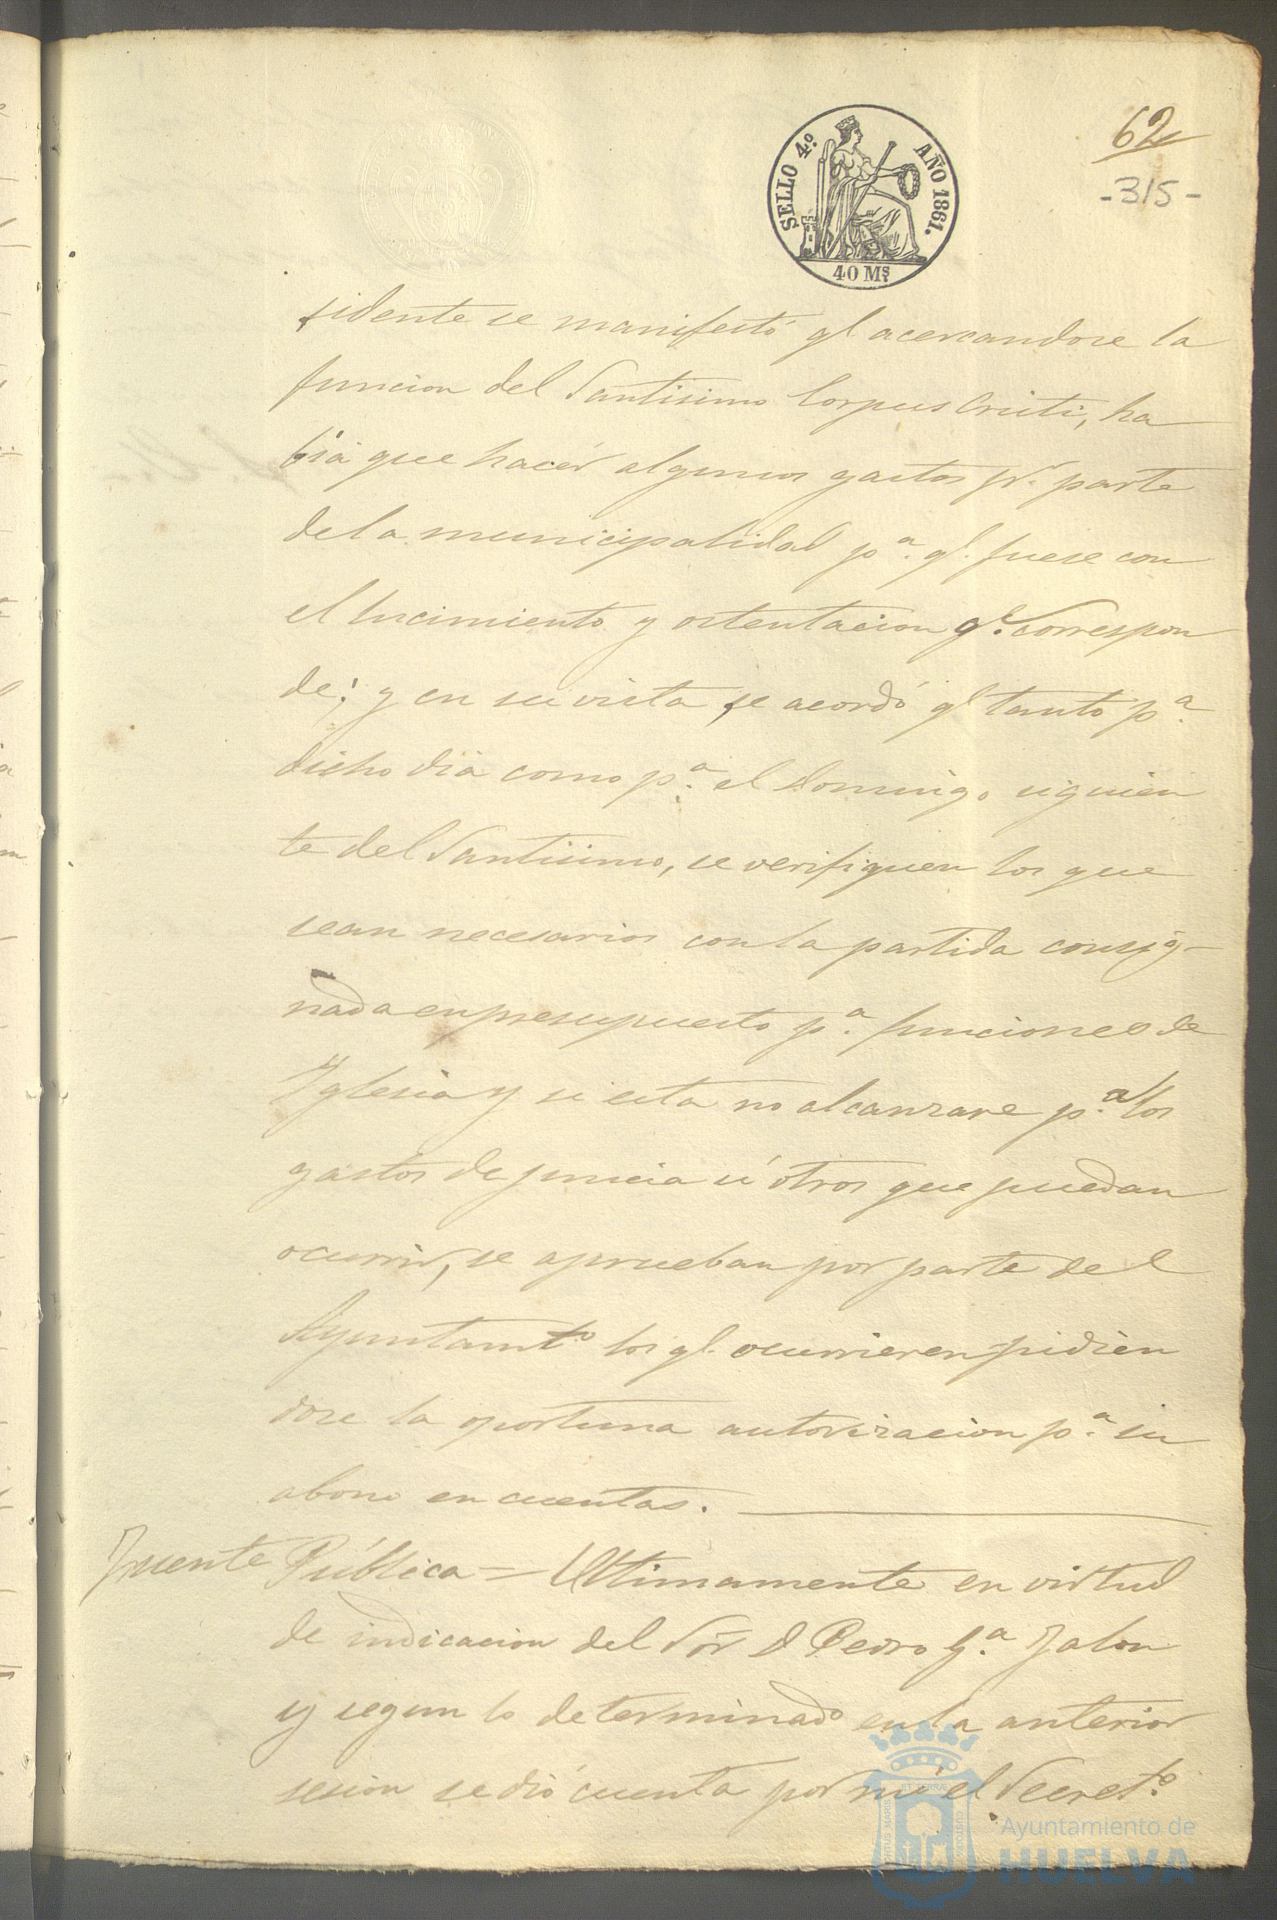 62
-315-
SELLO 4.º AÑO 1861.
40 Ms.
sidente se manifestó q.e acercandose la
funcion del Santisimo Corpus Cristi, ha
bia que hacer algunos gastos pr. parte
de la municipalidad p.a q.e fuese con
el lucimiento y ostentacion q.e correspon
de; y en su vista se acordó q.e tanto p.a
dicho dia como p.a el Domingo siguien
te del Santisimo, se verifiquen los que
sean necesarios con la partida consig-
nada en presupuesto p.a funciones de
Yglesia y si esta no alcanzare p.a los
gastos de juncia ú otros que puedan
ocurrir, se aprueban por parte del
Ayuntamt.o los q.e ocurrieren pidien
dose la oportuna autorizacion p.a su
abono en cuentas.
Fuente Pública = Ultimamente en virtud
de indicacion del Sor. D Pedro G.a Jalon
y segun lo determinado en la anterior
sesion se dió cuenta por mi el Secret.o
Ayuntamiento de
HUELVA